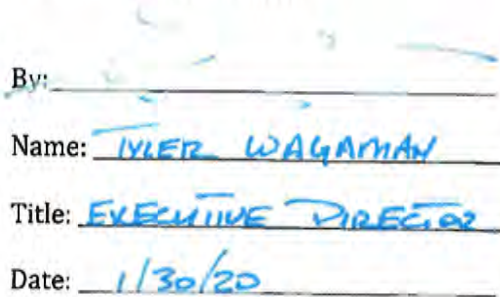 By:
Name: TYLER WAGAMAN
Title: EXECUTIVE DIRECTOR
Date: 1/30/20